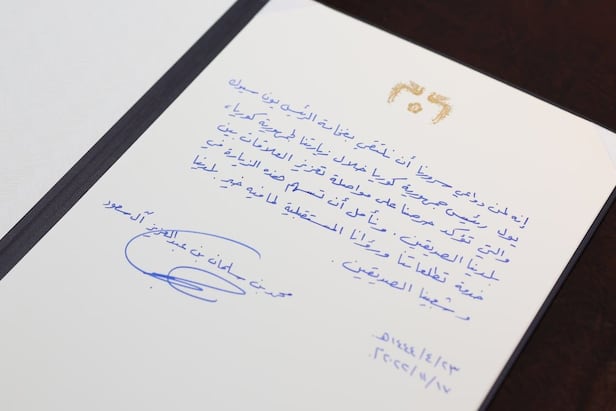 إنه لمن دواعي سرورنا أن نلتقي بفخامة الرئيس يون سيوك
يول رئيس جمهورية كوريا خلال زيارتنا لجمهورية كوريا،
والتي تؤكد حرصنا على مواصلة تعزيز العلاقات بين
بلدينا الصديقين. ونأمل أن تسهم هذه الزيارة في
خدمة تطلعاتنا ورؤانا المستقبلية لما فيه خير بلدينا
وشعبينا الصديقين.
محمد بن سلمان بن عبدالعزيز آل سعود
١٤٤٤/٤/٢٣هـ
٢٠٢٢/١١/١٧م